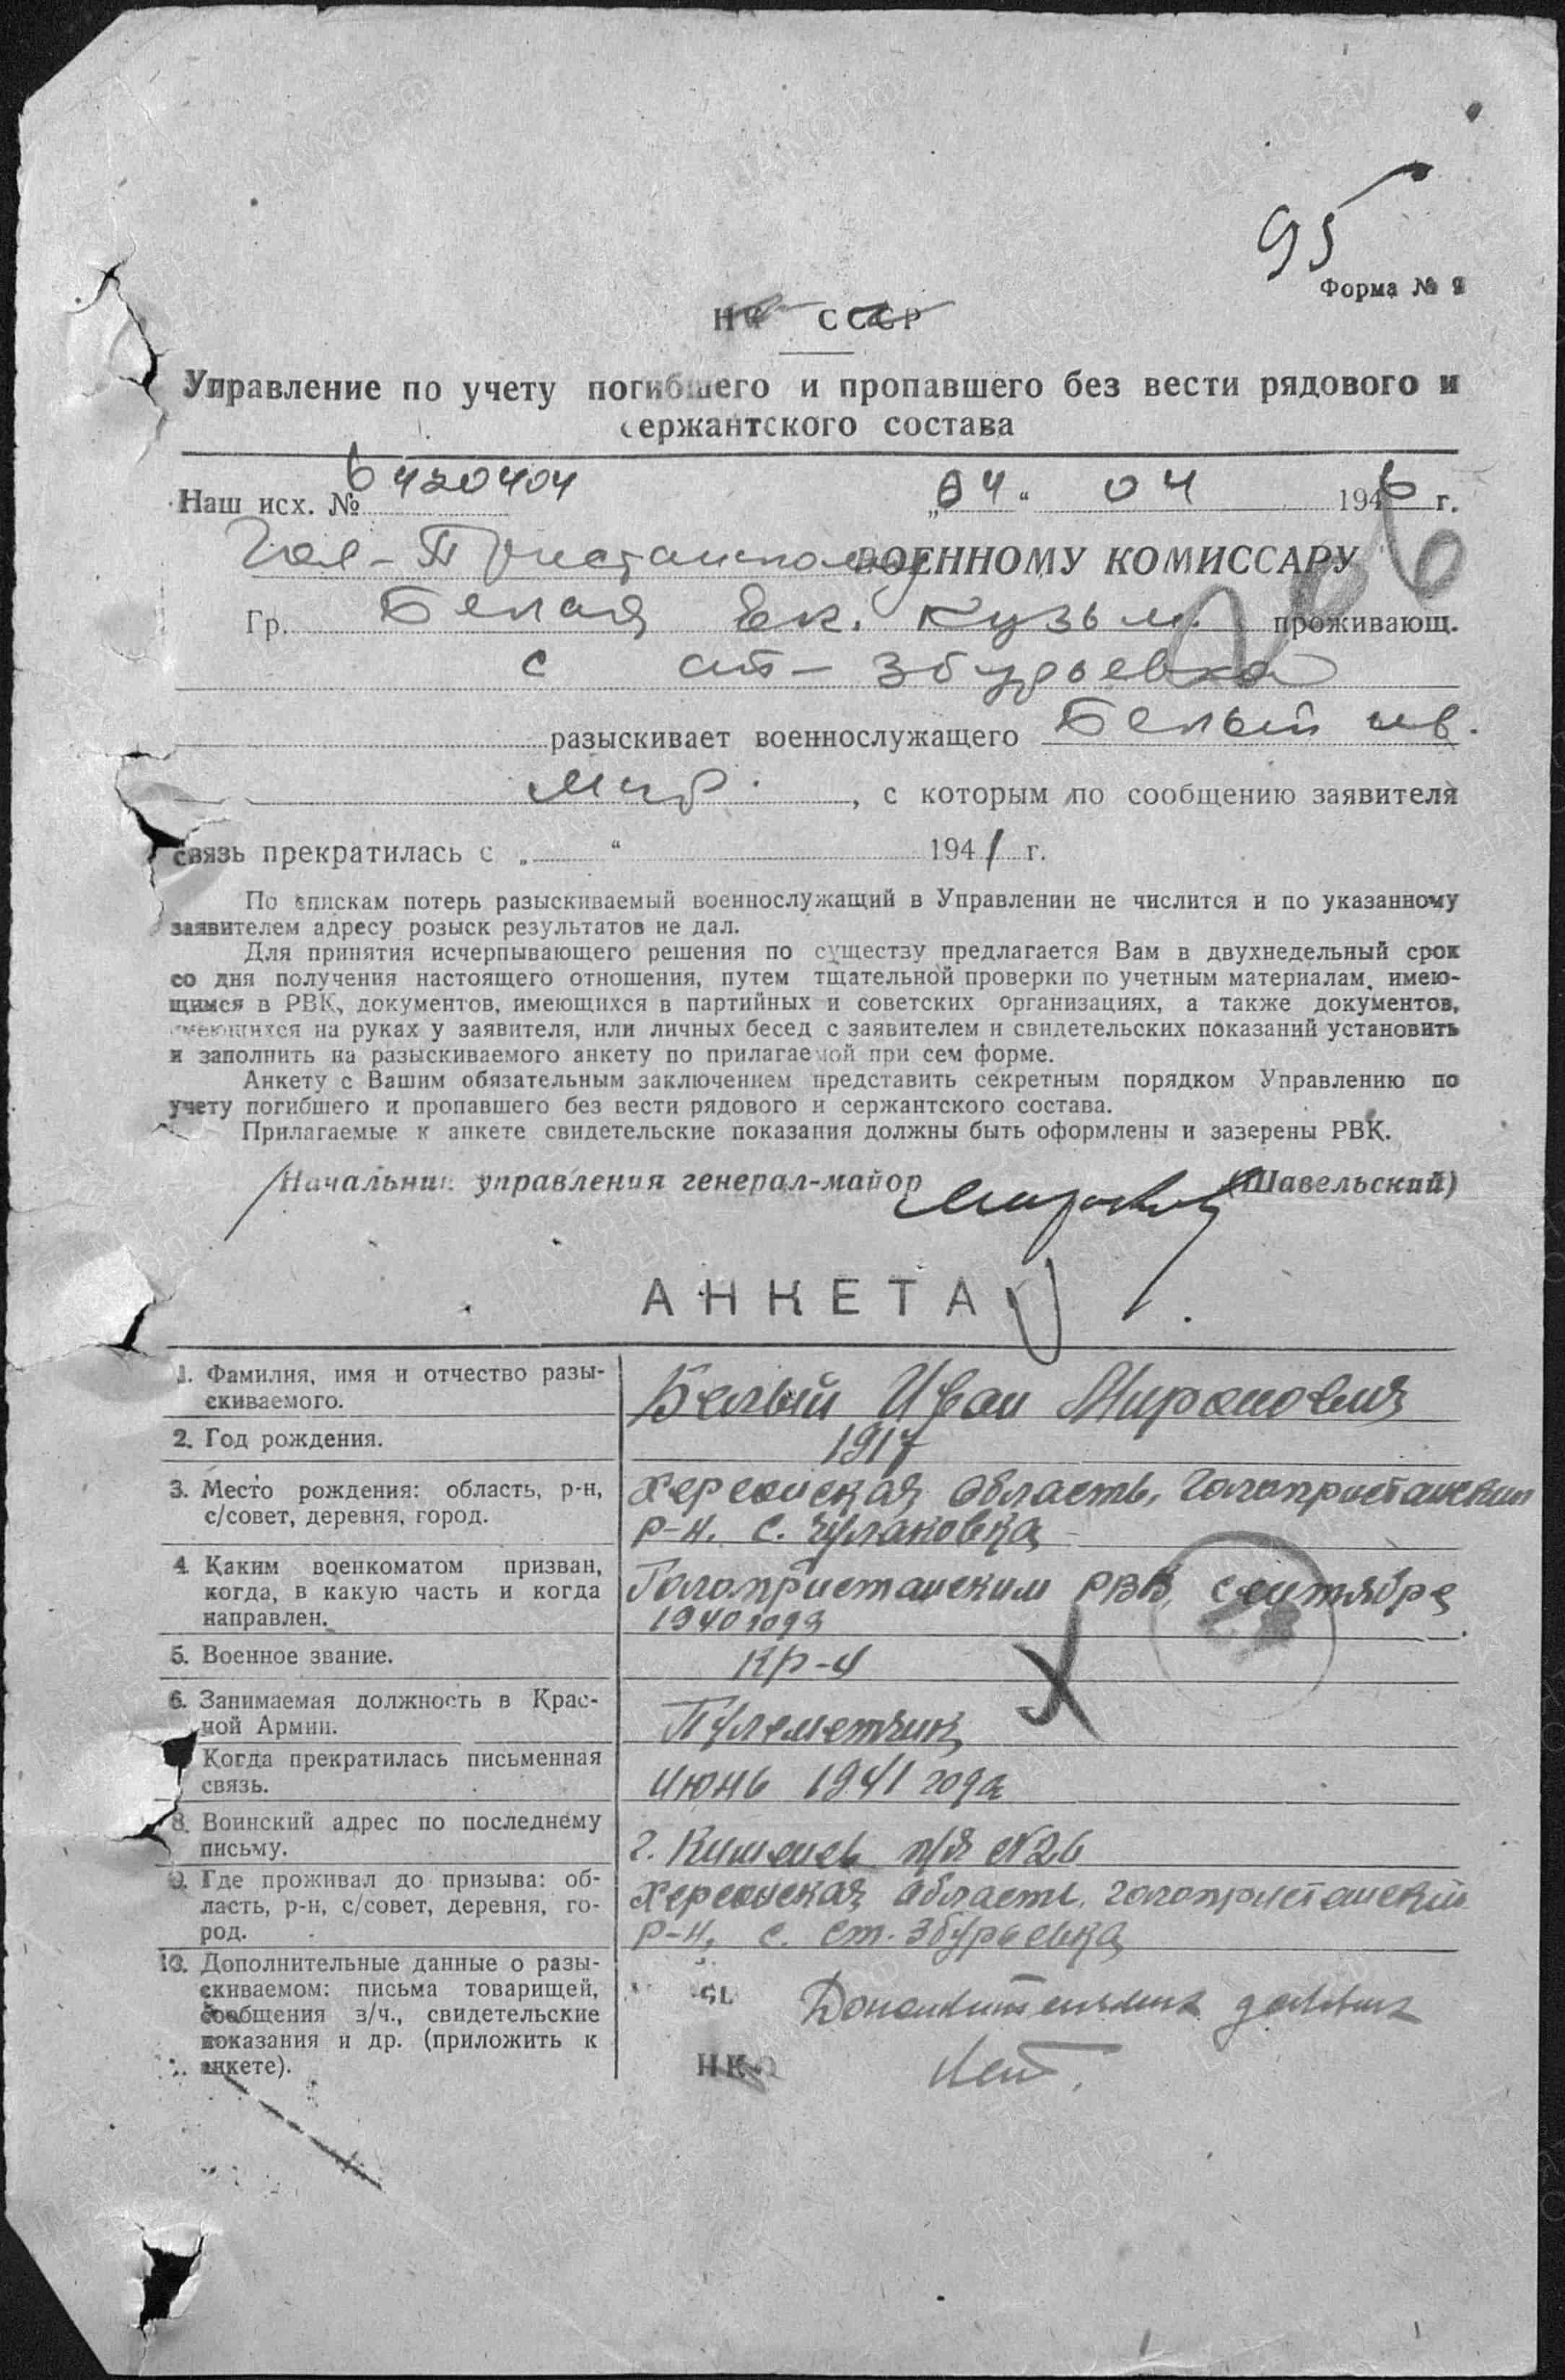 95
Форма № 9
НКО СССР
Управление по учету погибшего и пропавшего без вести рядового и
сержантского состава
Наш исх. № 6420404 „04“ 04 1946 г.
Гол-Пристанскому ВОЕННОМУ КОМИССАРУ
Гр. Белая Ек. Кузьм. проживающ.
с ст- Збурьевка
разыскивает военнослужащего Белый ив.
Мир. , с которым по сообщению заявителя
связь прекратилась с „ “ 1941 г.
По спискам потерь разыскиваемый военнослужащий в Управлении не числится и по указанному
заявителем адресу розыск результатов не дал.
Для принятия исчерпывающего решения по существу предлагается Вам в двухнедельный срок
со дня получения настоящего отношения, путем тщательной проверки по учетным материалам, имею-
щимся в РВК, документов, имеющихся в партийных и советских организациях, а также документов,
имеющихся на руках у заявителя, или личных бесед с заявителем и свидетельских показаний установить
и заполнить на разыскиваемого анкету по прилагаемой при сем форме.
Анкету с Вашим обязательным заключением представить секретным порядком Управлению по
учету погибшего и пропавшего без вести рядового и сержантского состава.
Прилагаемые к анкете свидетельские показания должны быть оформлены и зазерены РВК.
Начальник управления генерал-майор (Шавельский)
АНКЕТА
1. Фамилия, имя и отчество разы-
скиваемого.
Белый Иван Миронович
2. Год рождения.
1917
3. Место рождения: область, р-н,
с/совет, деревня, город.
Херсонская область, Голопристанский
р-н. с. Чулаковка
4. Каким военкоматом призван,
когда, в какую часть и когда
направлен.
Голопристанским РВК, сентября
1940 года
5. Военное звание.
кр-ц
6. Занимаемая должность в Крас-
ной Армии.
Пулеметчик
Когда прекратилась письменная
связь.
июнь 1941 года
8. Воинский адрес по последнему
письму.
г. Кишенев п/я №26
9. Где проживал до призыва: об-
ласть, р-н, с/совет, деревня, го-
род.
Херсонская область, голопристанский
р-н, с. Ст. Збурьевка
10. Дополнительные данные о разы-
скиваемом: письма товарищей,
сообщения з/ч., свидетельские
показания и др. (приложить к
анкете).
Дополнительных данных
Нет.
НКО